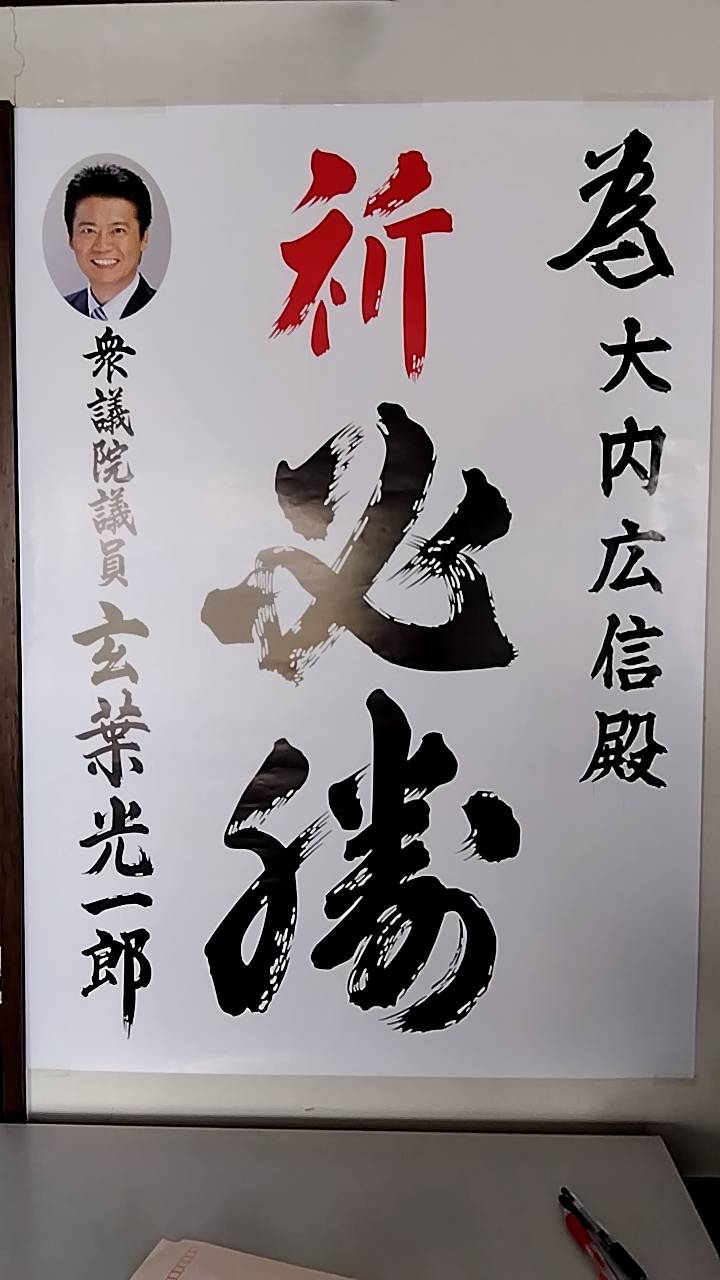 為 大内広信殿
祈必勝
衆議院議員 玄葉光一郎